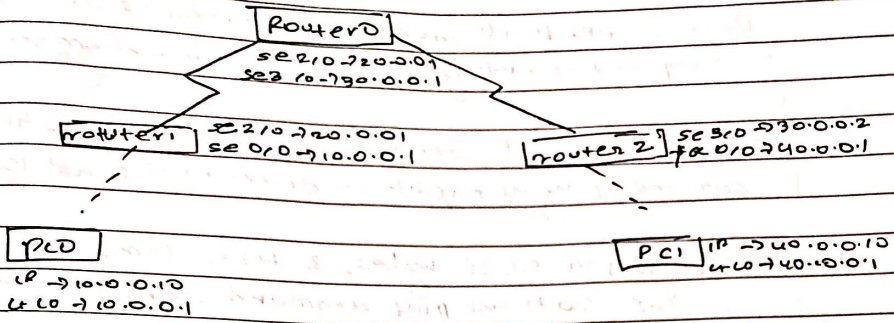 Router0
se2/0→20.0.01
se3/0→30.0.0.1
rotuter1
se2/0→20.0.01
se0/0→10.0.0.1
router2
se3/0→30.0.0.2
fa0/0→40.0.0.1
PC0
IP→10.0.0.10
→10.0.0.1
PC1
IP→40.0.0.10
→40.0.0.1